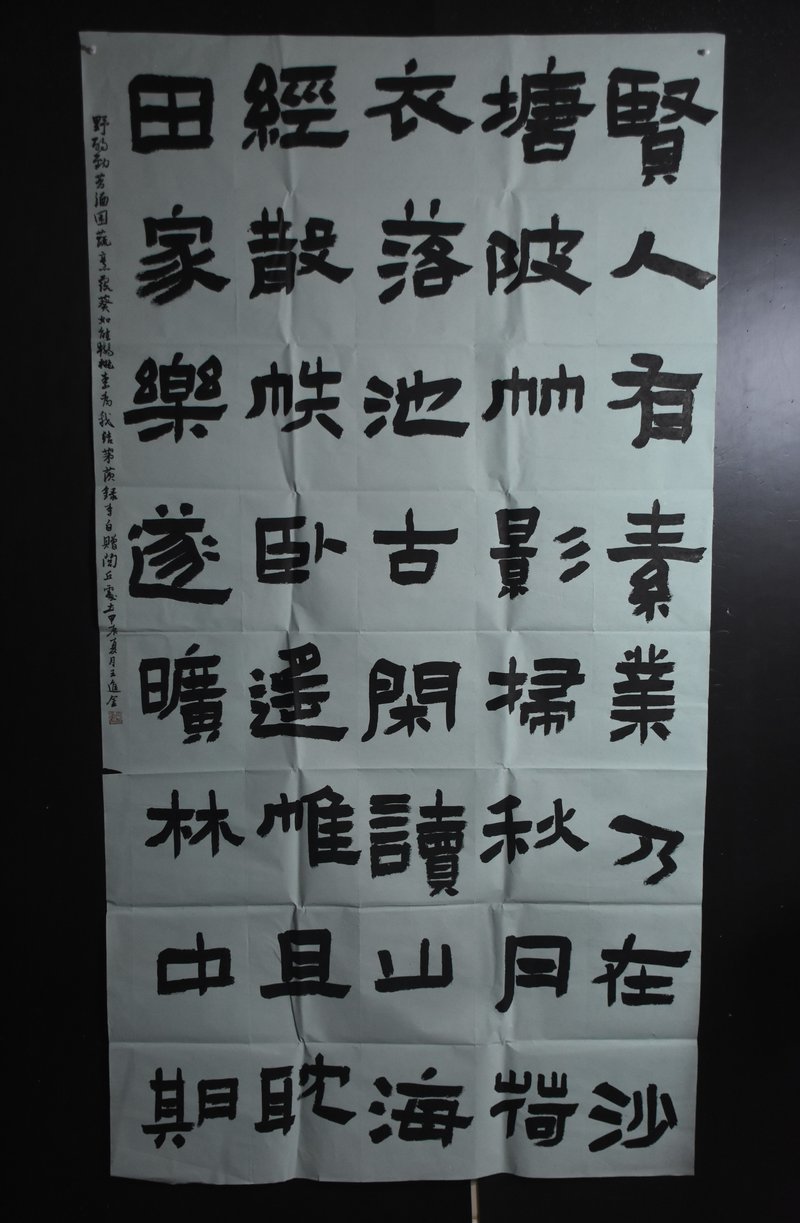 賢人有素業乃在沙
塘陂竹影掃秋月荷
衣落池古閑讀山海
經散帙臥遙帷且耽
田家樂遂曠林中期
野酌勸芳酒園蔬烹露葵如能樹桃李為我結茅茨錄李白贈閭丘處士甲辰夏月王進